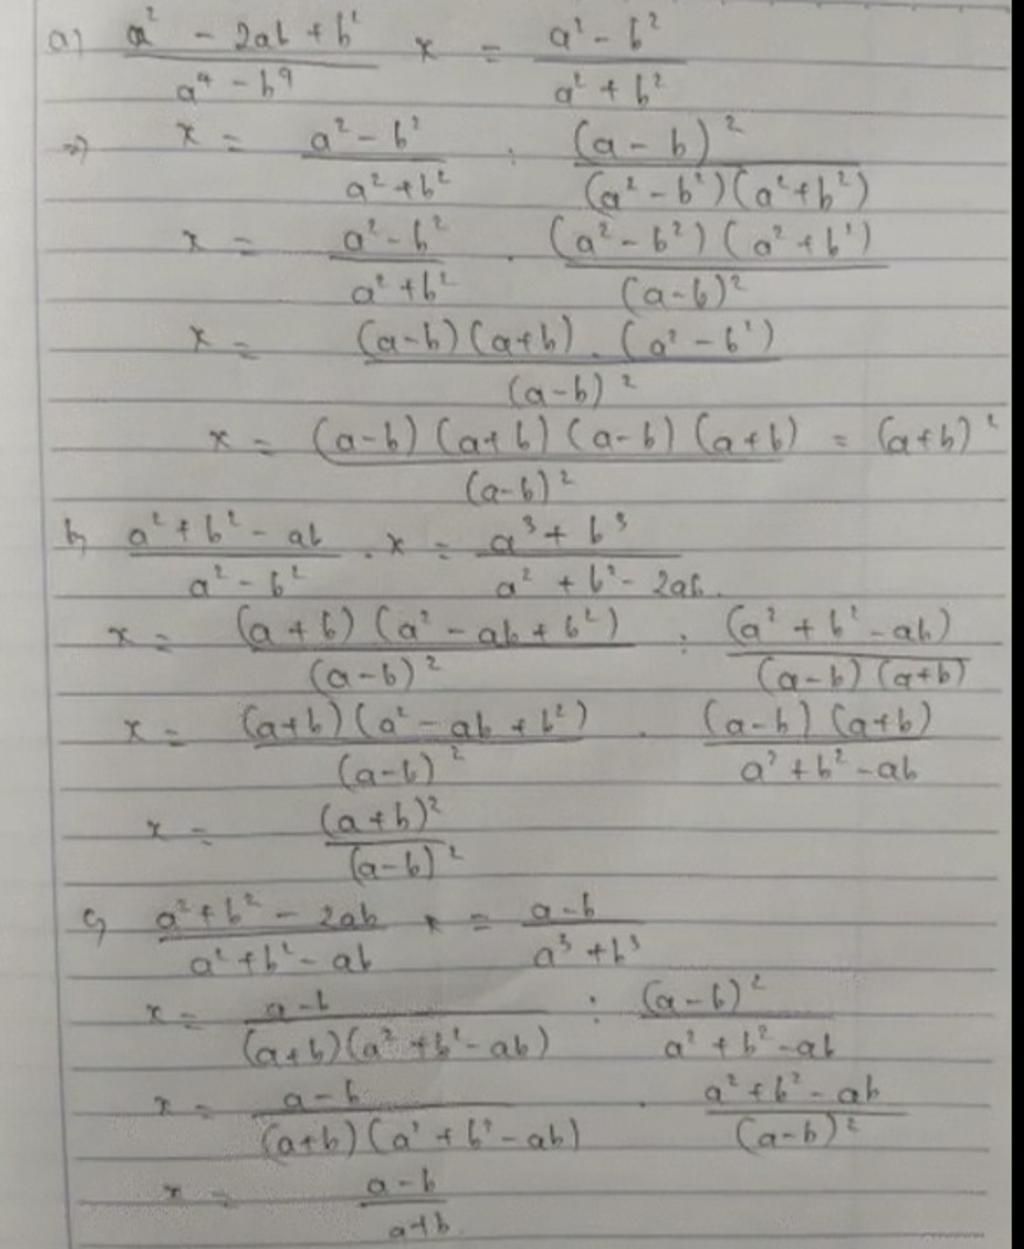 a) (a² - 2ab + b²)/(a⁴ - b⁴) x = (a² - b²)/(a² + b²)
=> x = (a² - b²)/(a² + b²) : (a - b)²/((a² - b²)(a² + b²))
x = (a² - b²)/(a² + b²) . ((a² - b²)(a² + b²))/(a - b)²
x = ((a - b)(a + b) . (a² - b²))/(a - b)²
x = ((a - b)(a + b)(a - b)(a + b))/(a - b)² = (a + b)²
b, (a² + b² - ab)/(a² - b²) . x = (a³ + b³)/(a² + b² - 2ab).
x = ((a + b)(a² - ab + b²))/(a - b)² : (a² + b² - ab)/((a - b)(a + b))
x = ((a + b)(a² - ab + b²))/(a - b)² . ((a - b)(a + b))/(a² + b² - ab)
x = (a + b)²/(a - b)²
c, (a² + b² - 2ab)/(a² + b² - ab) x = (a - b)/(a³ + b³)
x = (a - b)/((a + b)(a² + b² - ab)) : (a - b)²/(a² + b² - ab)
x = (a - b)/((a + b)(a² + b² - ab)) . (a² + b² - ab)/(a - b)²
x = (a - b)/(a + b)